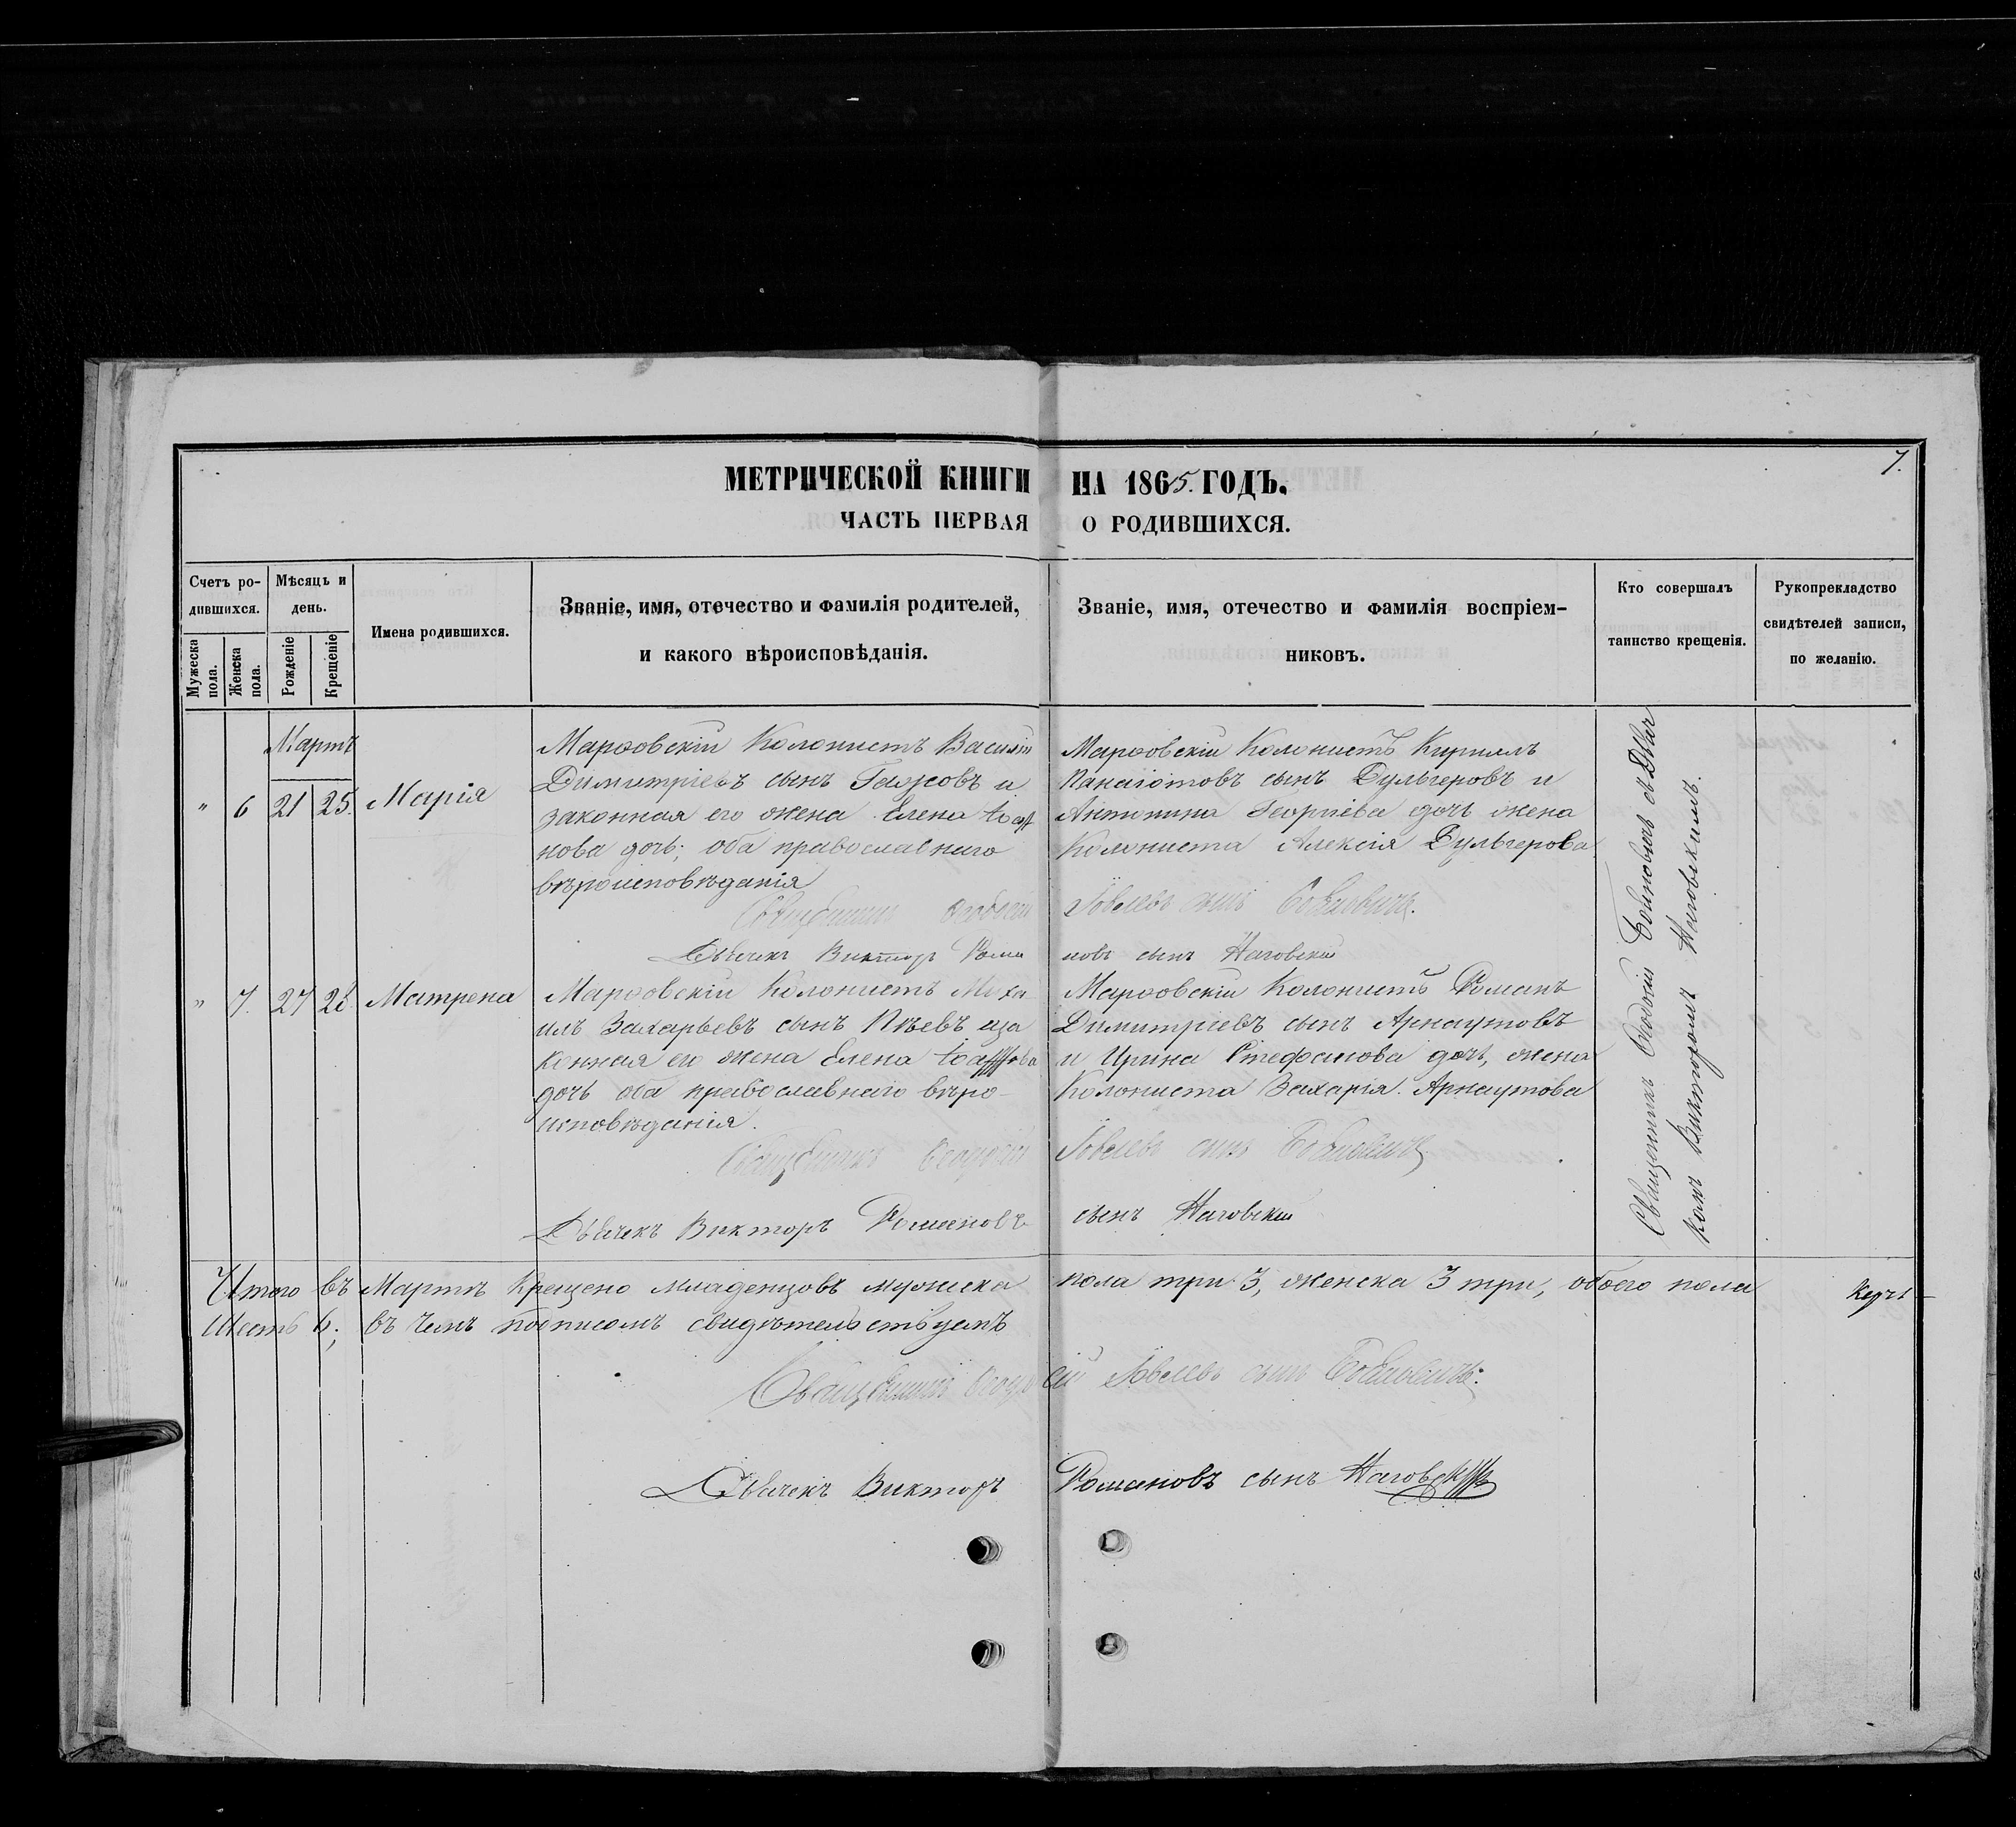 7.
МЕТРИЧЕСКОЙ КНИГИ НА 1865. ГОДЪ.
ЧАСТЬ ПЕРВАЯ О РОДИВШИХСЯ.
Счетъ ро-
дившихся.
Мужеска
пола.
Женска
пола.
Мѣсяцъ и
день.
Рожденіе
Крещеніе
Имена родившихся.
Званіе, имя, отечество и фамилія родителей,
и какого вѣроисповѣданія.
Званіе, имя, отечество и фамилія воспріем-
никовъ.
Кто совершалъ
таинство крещенія.
Рукоприкладство
свидѣтелей записи,
по желанію.
Мартъ
" 6 21 25. Марія
Марѳовскій Колонистъ Василій
Димитріевъ сынъ и
законная его жена Елена
нова дочь; оба православнаго
вѣроисповѣданія
Марѳовскій Колонистъ Кириллъ
Панаіотовъ сынъ Дульгеровъ и
Антонина Георгіева дочь жена
Колониста Алексія Дульгерова
Священникъ Ѳеодосій Іовлевъ сынъ
Дьячекъ Викторъ Рома новъ сынъ Наговскій
" 7. 27 28. Матрена
Марѳовскій Колонистъ Миха-
илъ Захарьевъ сынъ иза
конная его жена Елена
дочь оба православнаго вѣро-
исповѣданія.
Марѳовскій Колонистъ Романъ
Димитріевъ сынъ Арнаутовъ
и Ирина Стефанова дочь, жена
Колониста Захарія Арнаутова
Священникъ Ѳеодосій Іовлевъ сынъ
Дьячекъ Викторъ Романовъ сынъ Наговскій
Священникъ Ѳеодосій съ Дьяч
комъ Викторомъ Наговскимъ.
Итого въ Мартѣ Крещено младенцовъ мужеска пола три 3, женска 3 три, обоего пола
Шесть 6; въ чемъ подписомъ свидѣтельствуемъ
Священникъ Ѳеодосій Іовлевъ сынъ
Дьячекъ Викторъ Романовъ сынъ Наговскій